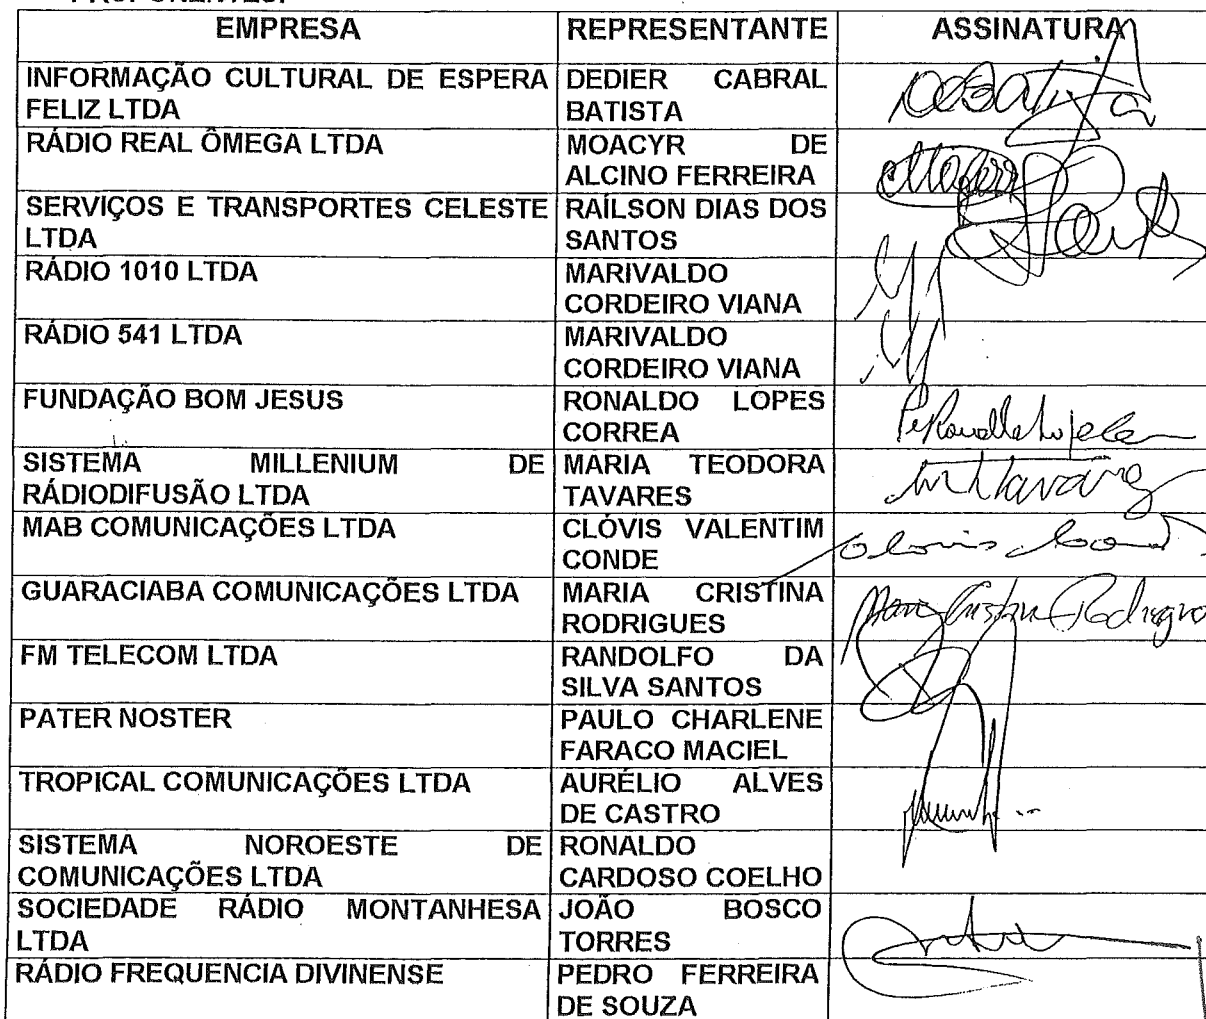 PROPONENTES:
EMPRESA REPRESENTANTE ASSINATURA
INFORMAÇÃO CULTURAL DE ESPERA DEDIER CABRAL
FELIZ LTDA BATISTA
RÁDIO REAL ÔMEGA LTDA MOACYR DE
ALCINO FERREIRA
SERVIÇOS E TRANSPORTES CELESTE RAÍLSON DIAS DOS
LTDA SANTOS
RÁDIO 1010 LTDA MARIVALDO
CORDEIRO VIANA
RÁDIO 541 LTDA MARIVALDO
CORDEIRO VIANA
FUNDAÇÃO BOM JESUS RONALDO LOPES
CORREA
SISTEMA MILLENIUM DE MARIA TEODORA
RÁDIODIFUSÃO LTDA TAVARES
MAB COMUNICAÇÕES LTDA CLÓVIS VALENTIM
CONDE
GUARACIABA COMUNICAÇÕES LTDA MARIA CRISTINA
RODRIGUES
FM TELECOM LTDA RANDOLFO DA
SILVA SANTOS
PATER NOSTER PAULO CHARLENE
FARACO MACIEL
TROPICAL COMUNICAÇÕES LTDA AURÉLIO ALVES
DE CASTRO
SISTEMA NOROESTE DE RONALDO
COMUNICAÇÕES LTDA CARDOSO COELHO
SOCIEDADE RÁDIO MONTANHESA JOÃO BOSCO
LTDA TORRES
RÁDIO FREQUENCIA DIVINENSE PEDRO FERREIRA
DE SOUZA